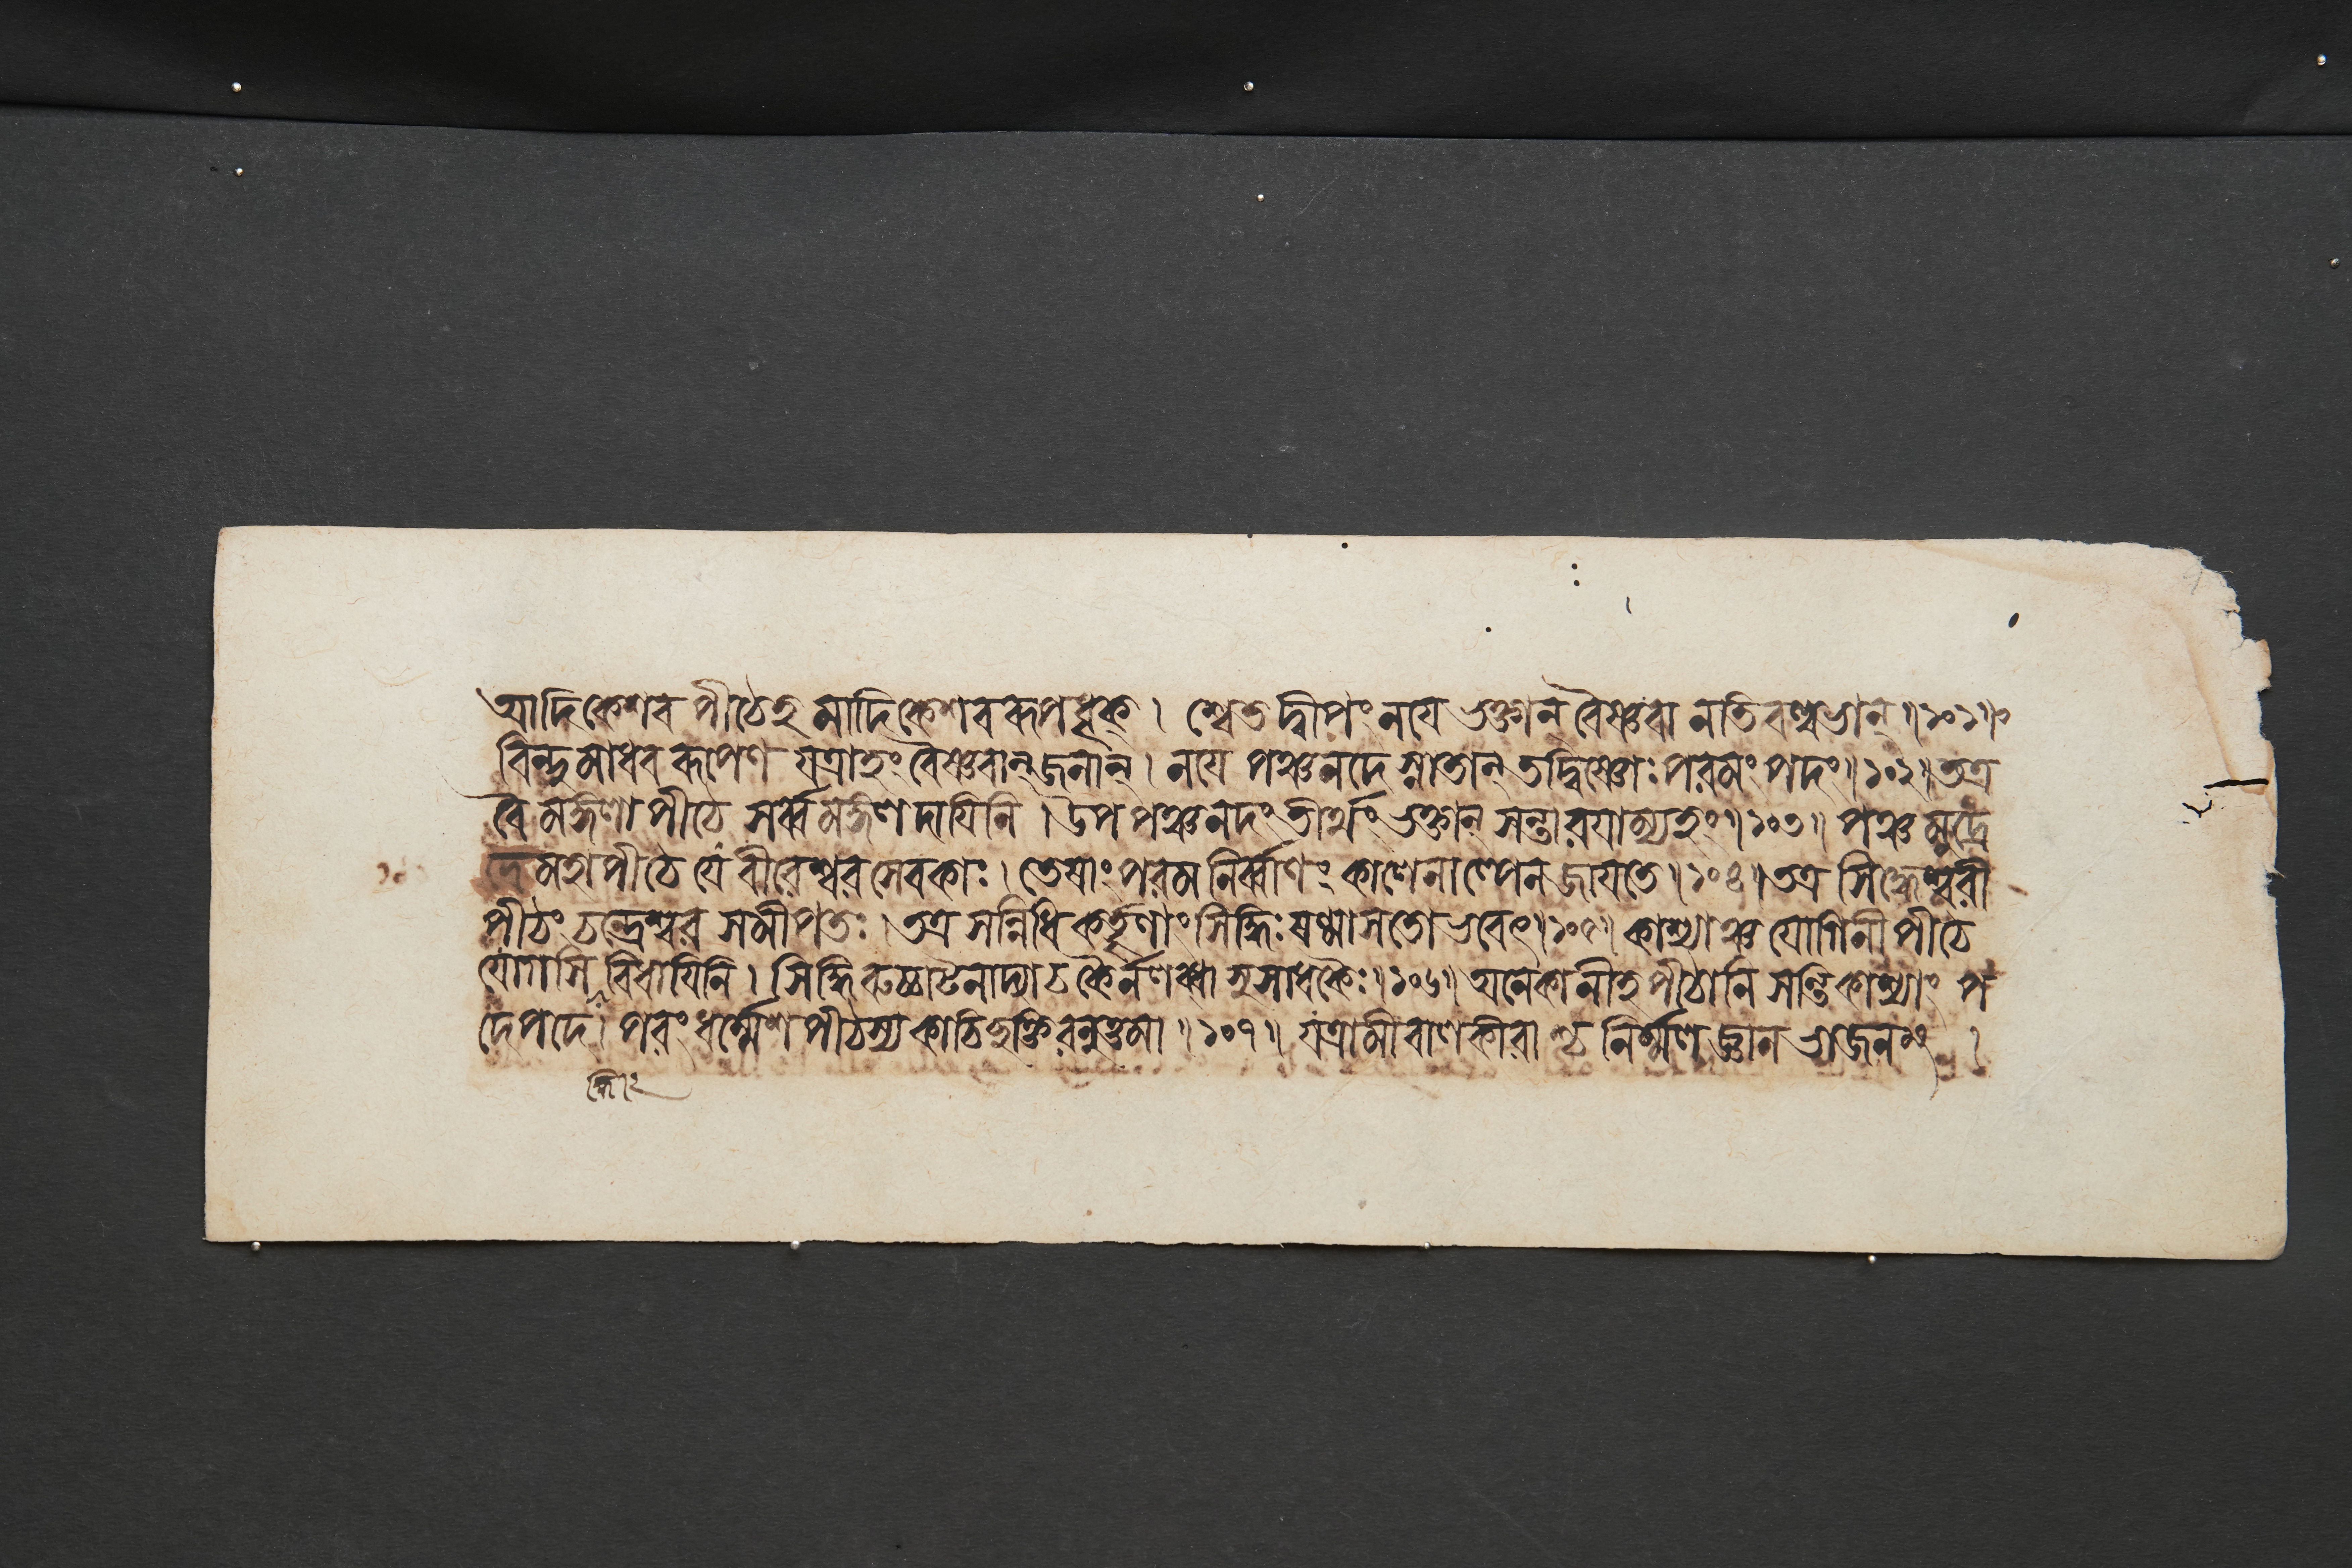 আদিকেশব পীঠেহ মাদিকেশবরূপধৃক্ । শ্বেতদ্বীপং নযে ভক্তান্ বৈষ্ণবা নতিবল্লভান্ ॥১০১॥
বিন্দুমাধব রূপেণ যত্রাহং বৈষ্ণবান্ জনান্ । নযে পঞ্চনদে স্নাতান্ তদ্বিষ্ণোঃ পরমং পদং ॥১০২॥ তত্র
বে মঙ্গলা পীঠে সর্ব্ব মঙ্গল দাযিনি । উপ পঞ্চনদং তীর্থং ভক্তান্ সন্তারযাম্যহং ॥১০৩॥ পঞ্চ মুদ্রে
দে মহাপীঠে যে বীরেশ্বর সেবকাঃ । তেষাং পরম নির্ব্বাণং কালেনাল্পেন জাযতে ॥১০৪॥ তত্র সিদ্ধেশ্বরী
পীঠং চন্দ্রেশ্বর সমীপতঃ । তত্র সন্নিধি কর্তৄণাং সিদ্ধিঃ ষণ্মাসতো ভবেৎ ॥১০৫॥ কাশ্যাঞ্চ যোগিনী পীঠে
যোগসি বিধাযিনি । সিদ্ধি রুচ্চাটনাদ্যাচ কৈর্নলব্ধা সুসাধকৈঃ ॥১০৬॥ অনেকানীহ পীঠানি সন্তি কাশ্যাং প
দে পদে । পরং ধর্ম্মেশ পীঠস্য কাচিচ্ছক্তি রনুত্তমা ॥১০৭॥ যত্রামী বালকীরা শ্চ নির্ম্মল জ্ঞান ভাজনং ।
দ্ধি ঃ